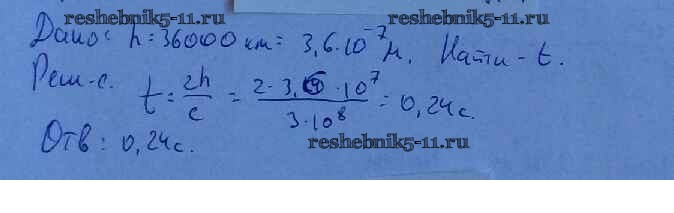 reshebnik5-11.ru
Дано: h = 36000 км = 3,6·10⁻⁷ м. Найти - t.
Реш-е.
t = 2h/c = 2·3,6·10⁷/3·10⁸ = 0,24 с.
Отв: 0,24 с.
reshebnik5-11.ru